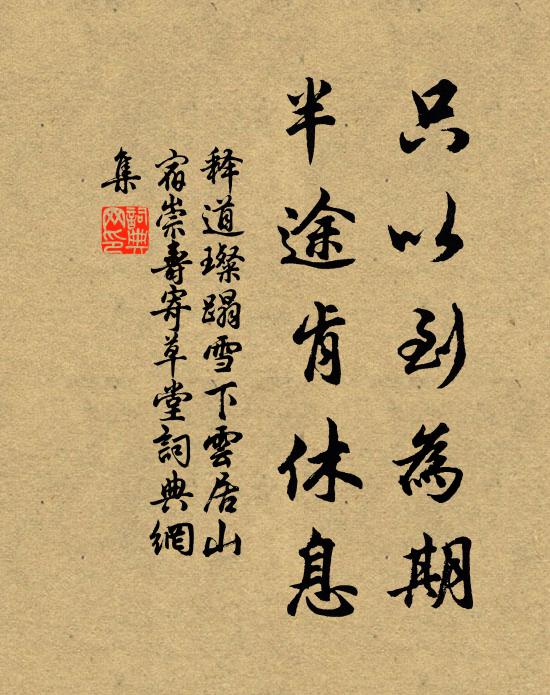 只以到為期
半途肯休息
释道璨蹋雪下雲居山
宿崇壽寄草堂詞典網
集
詞典
网印